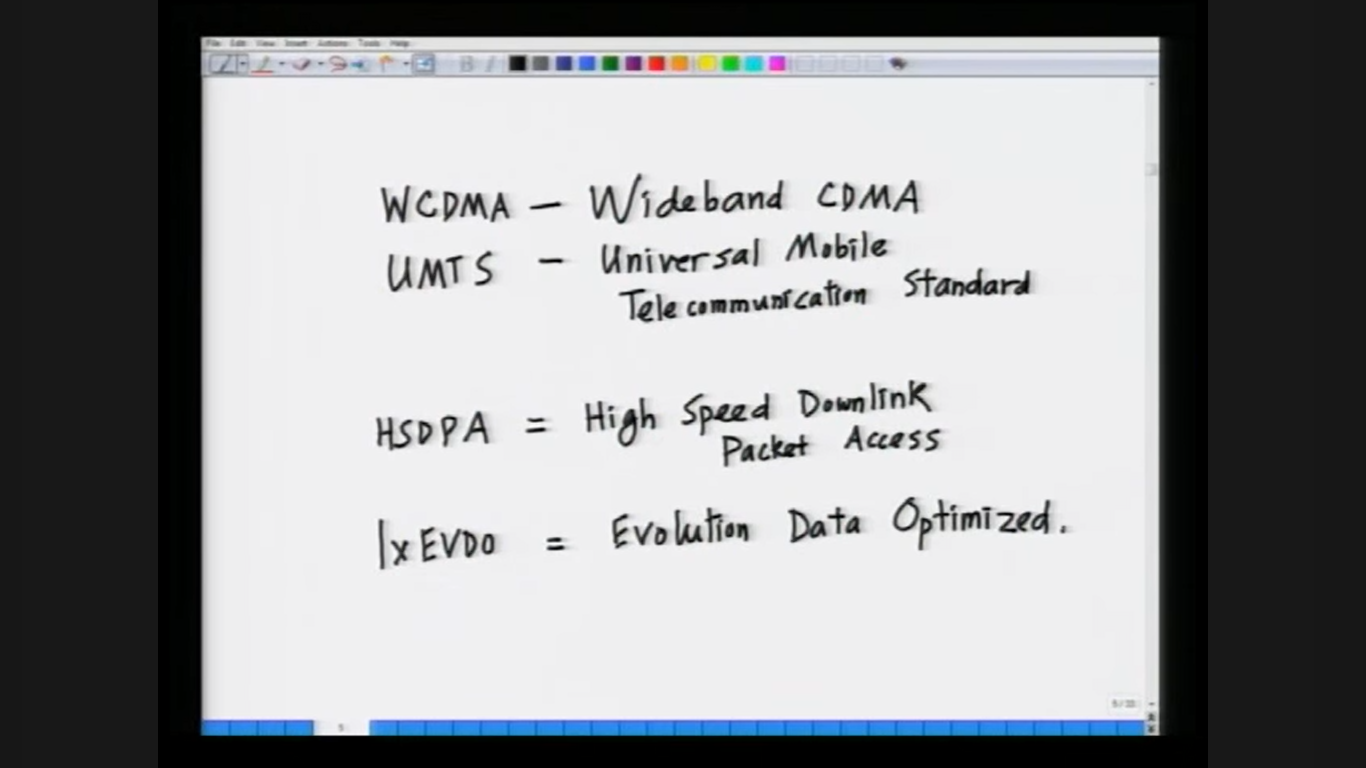 File Edit View Insert Actions Tools Help
WCDMA – Wideband CDMA
UMTS – Universal Mobile
Telecommunication Standard
HSDPA = High Speed Downlink
Packet Access
1xEVDO = Evolution Data Optimized.